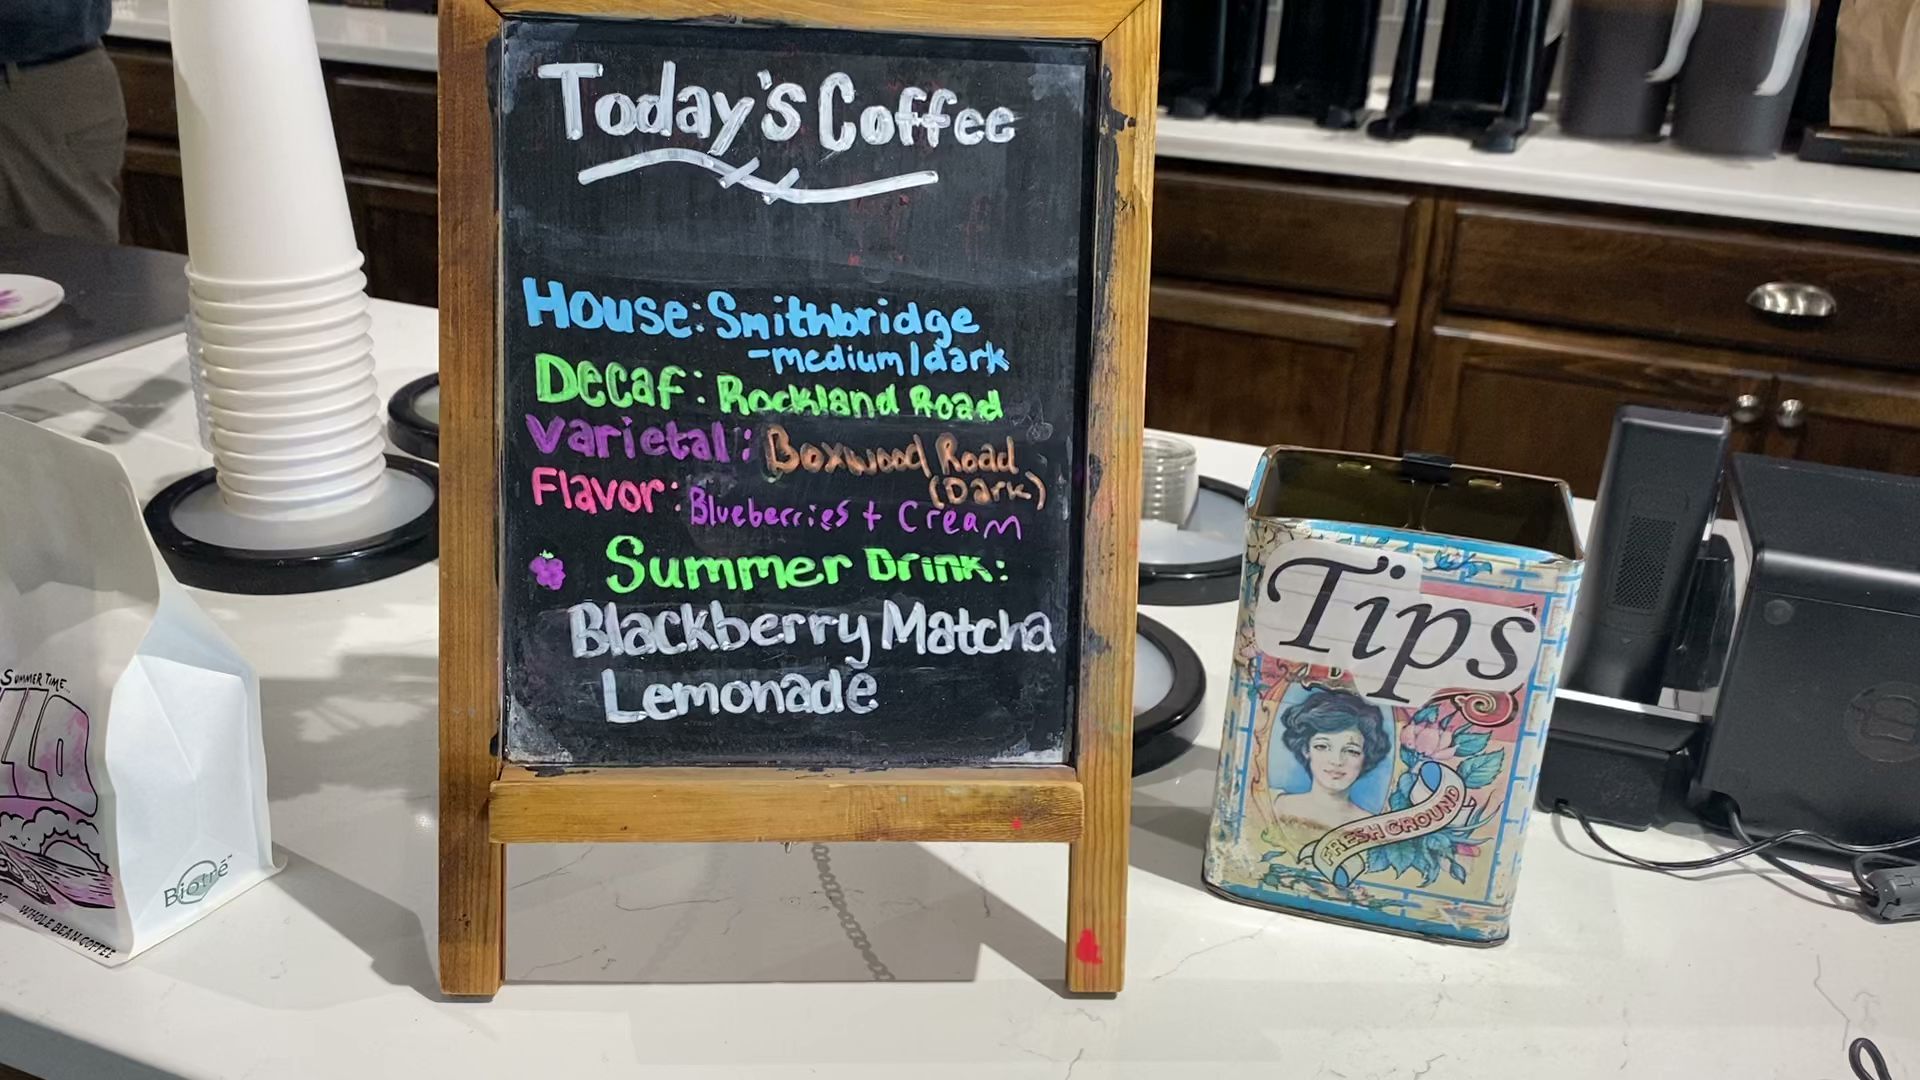 Today's Coffee
House: Smithbridge
-medium/dark
Decaf: Rockland Road
Varietal: Boxwood Road
(Dark)
Flavor: Blueberries + Cream
Summer Drink:
Blackberry Matcha
Lemonade
Tips
FRESH GROUND
SUMMER TIME...
Biotrē™
WHOLE BEAN COFFEE